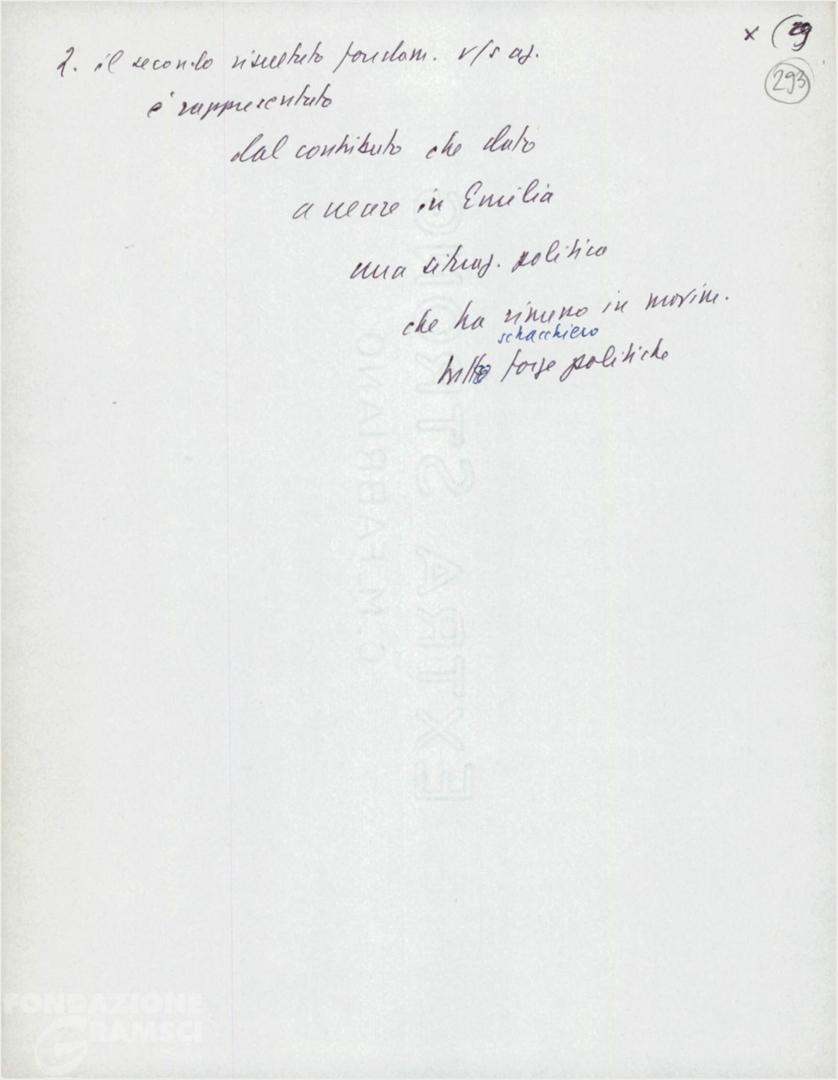 x (29
293
2. il secondo risultato fondam. v/s az.
è rappresentato
dal contributo che dato
a creare in Emilia
una situaz. politica
che ha rimesso in movim.
schacchiero
tutto forze politiche
EXTRA STRONG
C.M. FABRIANO
FONDAZIONE
GRAMSCI